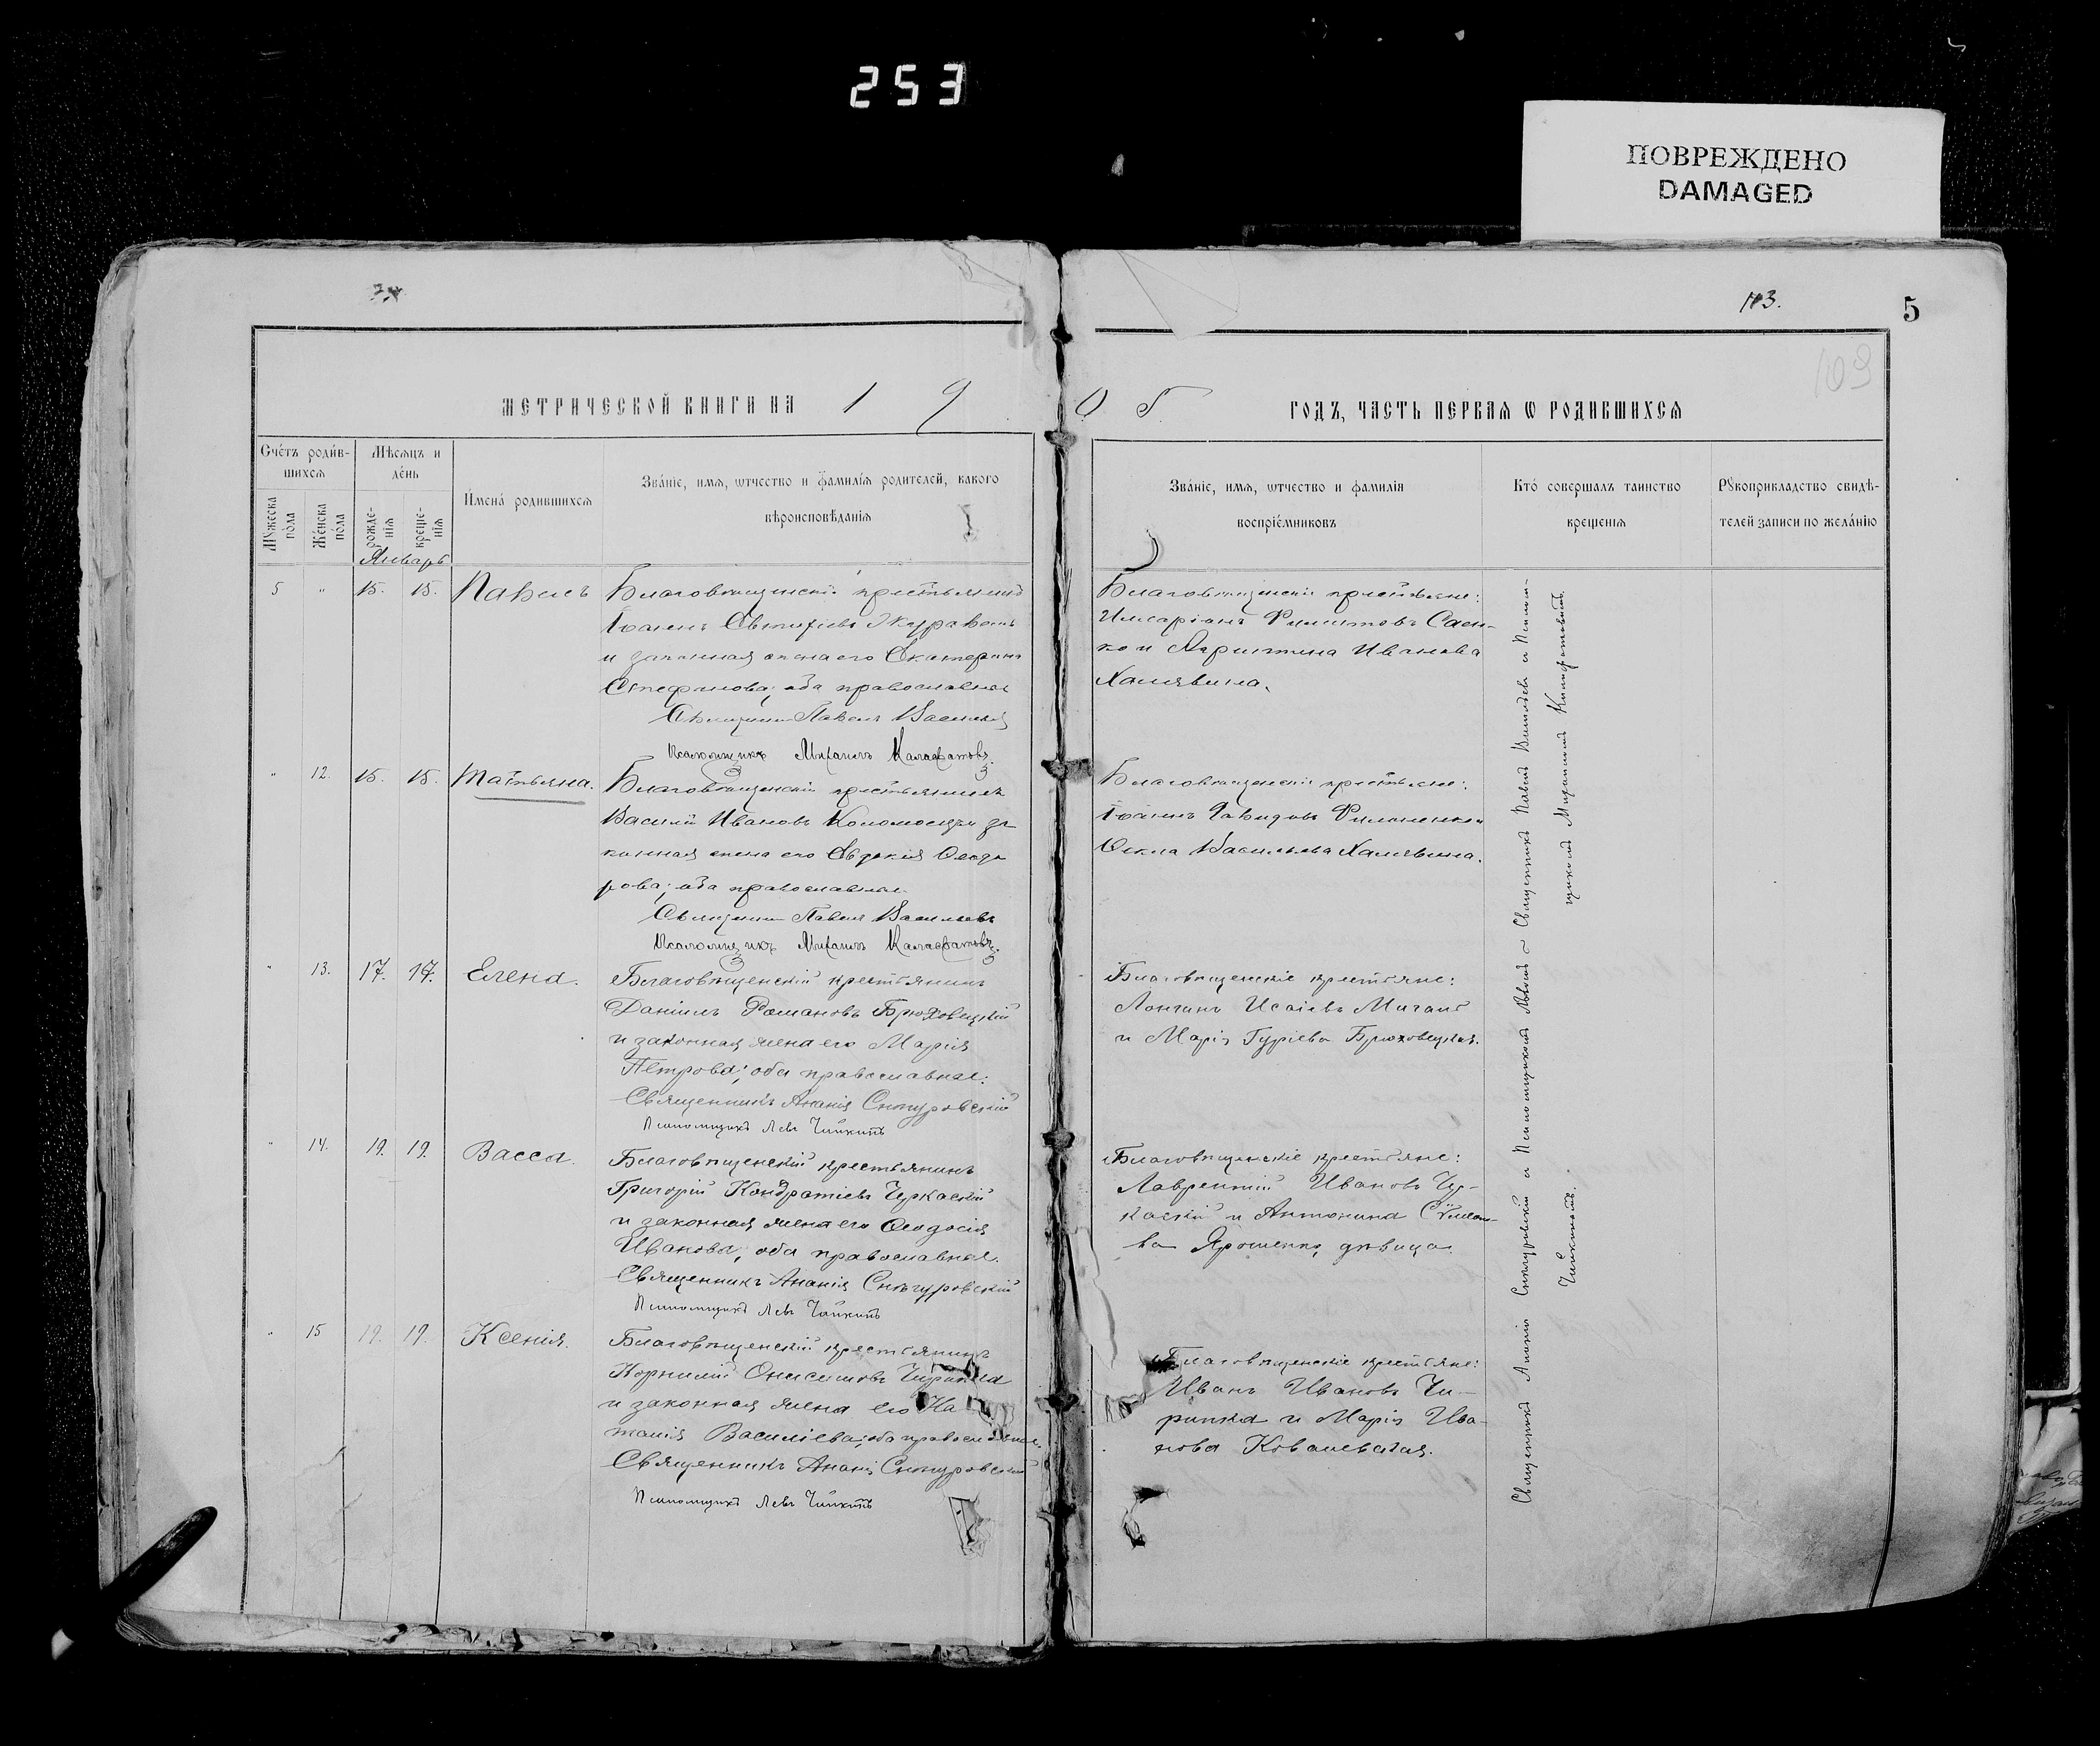 253
ПОВРЕЖДЕНО
DAMAGED
113.
5
109
МЕТРИЧЕСКОЙ КНИГИ НА 1 9
0 5 ГОДЪ, ЧАСТЬ ПЕРВАЯ Ѡ РОДИВШИХСЯ
Счéтъ роди́в-
шихсѧ
Мѣсѧцъ и
де́нь
Мꙋжеска
по́ла
Же́нска
по́ла
рожде-
нїѧ
креще-
нїѧ
И́мена́ родившихсѧ
Зва́нїе, имѧ, ѿтчество и фамилїѧ родителей, какого
вѣроисповѣданїѧ
Зва́нїе, имѧ, ѿтчество и фамилїѧ
воспрїе́мниковъ
Кто́ совершалъ таинство
крещенїѧ
Рꙋкоприкладство свидѣ-
телей записи по жела́нїю
Январь
5 " 15. 15. Павелъ
Благовѣщенскій крестьянинъ
Іоаннъ Журавель
и законная жена его Екатерина
Стефанова; оба православные
Священникъ Павелъ Васильевъ
Псаломщикъ Михаилъ Калафатовъ.
Благовѣщенскіе крестьяне:
Иларіонъ Филиповъ Саен-
ко и Христина Иванова
Халявина.
" 12. 15. 15. Татьяна.
Благовѣщенскій крестьянинъ
Василій Ивановъ Коломоецъ и за
конная жена его Евдокія Ѳеодо
рова; оба православные
Священникъ Павелъ Васильевъ
Псаломщикъ Михаилъ Калафатовъ.
Благовѣщенскіе крестьяне:
Іоаннъ Давидовъ Филоненко и
Ѳекла Васильева Халявина.
" 13. 17. 17. Елена.
Благовѣщенскій крестьянинъ
Даніилъ Романовъ Брюховецкій
и законная жена его Марія
Петрова; оба православные.
Священникъ Ананія Снѣгуровскій
Псаломщикъ Левъ Чайкинъ
Благовѣщенскіе крестьяне:
Лонгинъ Исаіевъ
и Марія Гуріева Брюховецкая.
" 14. 19. 19. Васса.
Благовѣщенскій крестьянинъ
Григорій Кондратіевъ Черкаскій
и законная жена его Ѳеодосія
Иванова; оба православные.
Священникъ Ананія Снѣгуровскій
Псаломщикъ Левъ Чайкинъ
Благовѣщенскіе крестьяне:
Лаврентій Ивановъ Чер-
каскій и Антонина
ва Ярошенко, дѣвица.
" 15 19. 19. Ксенія.
Благовѣщенскій крестьянинъ
Корнилій Онисимовъ Чирипка
и законная жена его На-
талія Василіева; оба православные.
Священникъ Ананія Снѣгуровскій
Псаломщикъ Левъ Чайкинъ
Благовѣщенскіе крестьяне:
Иванъ Ивановъ Чи-
рипка и Марія Ива-
нова Ковалевская.
Священникъ Павелъ Васильевъ и Псалом-
щикъ Михаилъ Калафатовъ.
Священникъ Ананія Снѣгуровскій и Псаломщикъ Левъ
Чайкинъ.